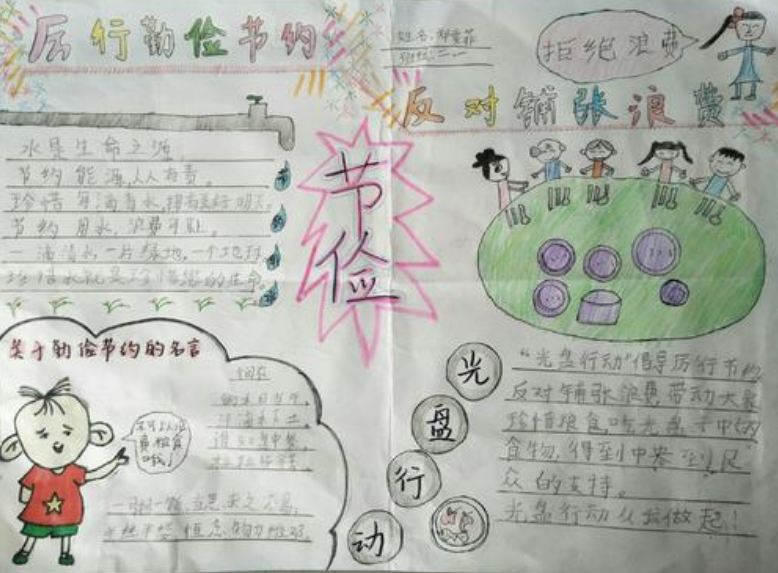 厉行勤俭节约
姓名:
班级:二
拒绝浪费
反对铺张浪费
水是生命之源,
节约能源,人人有责。
节约用水,浪费可耻。
一滴清水,一片绿地,一个地球
珍惜水就是珍惜您的生命。
节
节
俭
关于勤俭节约的名言
悯农
锄禾日当午,
汗滴禾下土。
谁知盘中餐,
粒粒皆辛苦。
一粥一饭,当思来之不易,
半丝半缕,恒念物力维艰。
光
盘
行
动
"光盘行动"倡导厉行节约
反对铺张浪费带动大家
珍惜粮食吃光盘子中的
食物,得到中央到民
众的支持。
光盘行动从我做起!